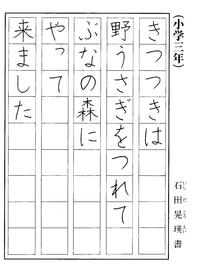 (小学三年)
きつつきは
野うさぎをつれて
ぶなの森に
やって
来ました
石田晃瑛書
いしだこうえい